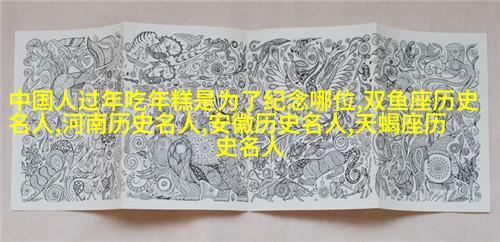 中国人过年吃年糕是为了纪念哪位,双鱼座历史
名人,河南历史名人,安徽历史名人,天蝎座历
史名人